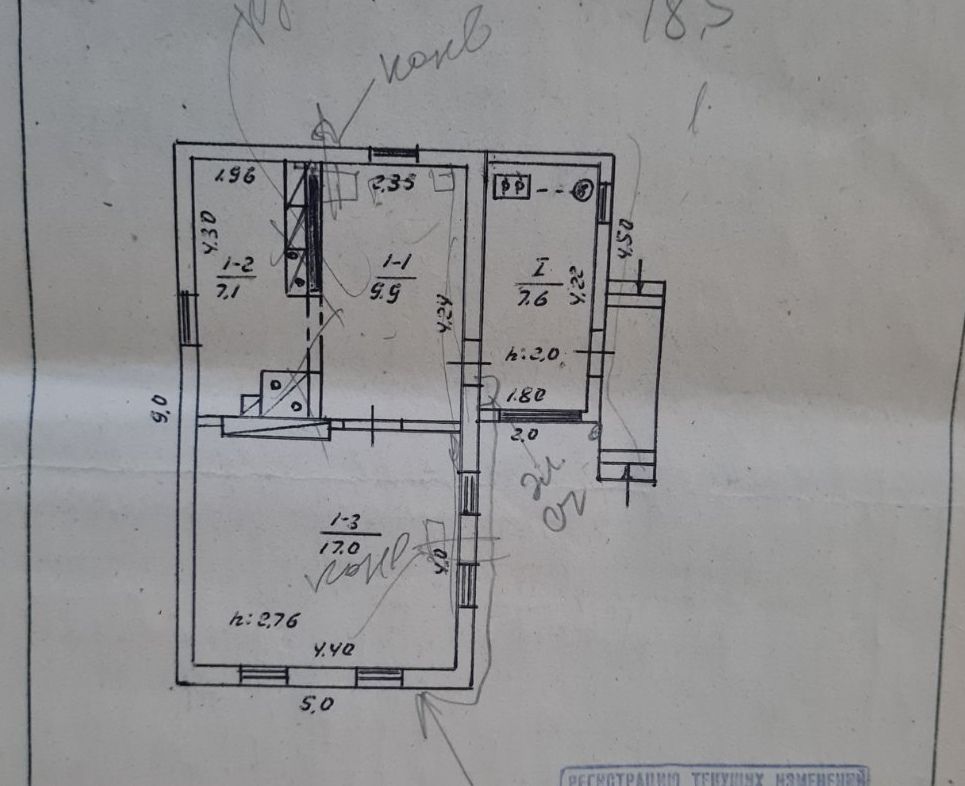 18,5
конв
1.96
2,35
4.30
1-2
7.1
1-1
9.9
I
7.6
4,22
4.50
4.24
h:2,0
1.80
2.0
9,0
эл
сч
1-3
17.0
конв
4,0
h:2,76
4.40
5,0
РЕГИСТРАЦИЮ ТЕКУЩИХ ИЗМЕНЕНИЙ